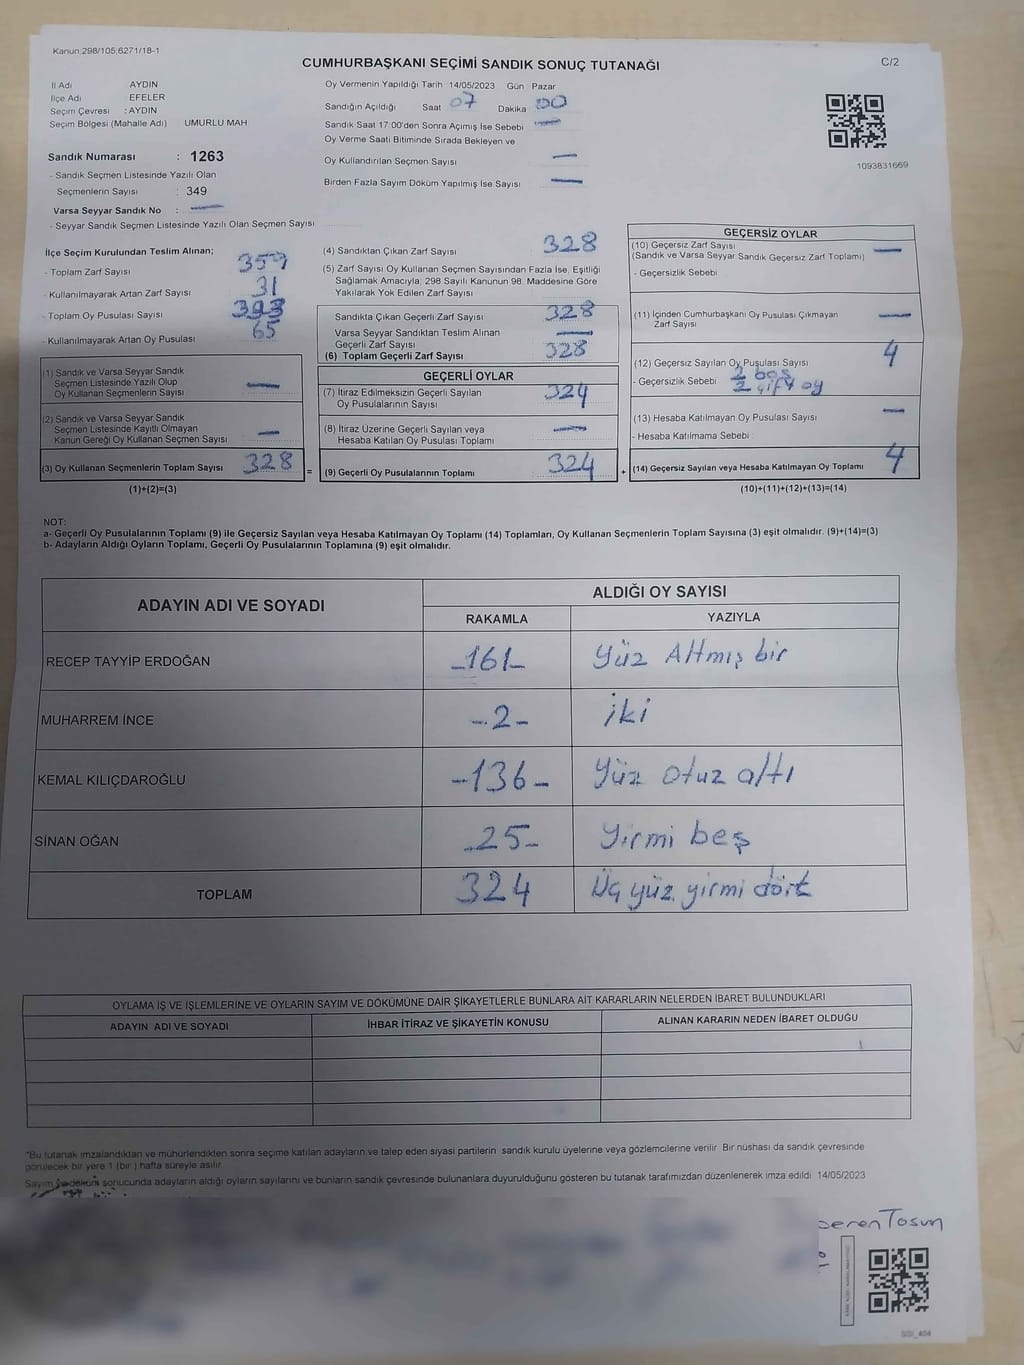 Kanun;298/105,6271/18-1
CUMHURBAŞKANI SEÇİMİ SANDIK SONUÇ TUTANAĞI
C/2
İl Adı AYDIN
İlçe Adı EFELER
Seçim Çevresi : AYDIN
Seçim Bölgesi (Mahalle Adı) UMURLU MAH
Sandık Numarası : 1263
- Sandık Seçmen Listesinde Yazılı Olan
Seçmenlerin Sayısı : 349
Varsa Seyyar Sandık No : —
- Seyyar Sandık Seçmen Listesinde Yazılı Olan Seçmen Sayısı
Oy Vermenin Yapıldığı Tarih : 14/05/2023 Gün Pazar
Sandığın Açıldığı Saat 07 Dakika 00
Sandık Saat 17:00'den Sonra Açımış İse Sebebi —
Oy Verme Saati Bitiminde Sırada Bekleyen ve
Oy Kullandırılan Seçmen Sayısı —
Birden Fazla Sayım Döküm Yapılmış İse Sayısı —
1093831669
İlçe Seçim Kurulundan Teslim Alınan;
- Toplam Zarf Sayısı 359
- Kullanılmayarak Artan Zarf Sayısı 31
- Toplam Oy Pusulası Sayısı 393
- Kullanılmayarak Artan Oy Pusulası 65
(1) Sandık ve Varsa Seyyar Sandık
Seçmen Listesinde Yazılı Olup
Oy Kullanan Seçmenlerin Sayısı —
(2) Sandık ve Varsa Seyyar Sandık
Seçmen Listesinde Kayıtlı Olmayan
Kanun Gereği Oy Kullanan Seçmen Sayısı —
(3) Oy Kullanan Seçmenlerin Toplam Sayısı 328
(1)+(2)=(3)
(4) Sandıktan Çıkan Zarf Sayısı 328
(5) Zarf Sayısı Oy Kullanan Seçmen Sayısından Fazla İse, Eşitliği
Sağlamak Amacıyla; 298 Sayılı Kanunun 98. Maddesine Göre
Yakılarak Yok Edilen Zarf Sayısı
Sandıkta Çıkan Geçerli Zarf Sayısı 328
Varsa Seyyar Sandıktan Teslim Alınan
Geçerli Zarf Sayısı —
(6) Toplam Geçerli Zarf Sayısı 328
GEÇERLİ OYLAR
(7) İtiraz Edilmeksizin Geçerli Sayılan
Oy Pusulalarının Sayısı 324
(8) İtiraz Üzerine Geçerli Sayılan veya
Hesaba Katılan Oy Pusulası Toplamı —
= (9) Geçerli Oy Pusulalarının Toplamı 324
GEÇERSİZ OYLAR
(10) Geçersiz Zarf Sayısı —
(Sandık ve Varsa Seyyar Sandık Geçersiz Zarf Toplamı)
- Geçersizlik Sebebi
(11) İçinden Cumhurbaşkanı Oy Pusulası Çıkmayan
Zarf Sayısı —
(12) Geçersiz Sayılan Oy Pusulası Sayısı 4
- Geçersizlik Sebebi 2 boş
2 çift oy
(13) Hesaba Katılmayan Oy Pusulası Sayısı —
- Hesaba Katılmama Sebebi
+ (14) Geçersiz Sayılan veya Hesaba Katılmayan Oy Toplamı 4
(10)+(11)+(12)+(13)=(14)
NOT:
a- Geçerli Oy Pusulalarının Toplamı (9) ile Geçersiz Sayılan veya Hesaba Katılmayan Oy Toplamı (14) Toplamları, Oy Kullanan Seçmenlerin Toplam Sayısına (3) eşit olmalıdır. (9)+(14)=(3)
b- Adayların Aldığı Oyların Toplamı, Geçerli Oy Pusulalarının Toplamına (9) eşit olmalıdır.
ADAYIN ADI VE SOYADI
ALDIĞI OY SAYISI
RAKAMLA YAZIYLA
RECEP TAYYİP ERDOĞAN -161- Yüz Altmış bir
MUHARREM İNCE -2- İki
KEMAL KILIÇDAROĞLU -136- Yüz otuz altı
SİNAN OĞAN -25- Yirmi beş
TOPLAM 324 Üç yüz yirmi dört
OYLAMA İŞ VE İŞLEMLERİNE VE OYLARIN SAYIM VE DÖKÜMÜNE DAİR ŞİKAYETLERLE BUNLARA AİT KARARLARIN NELERDEN İBARET BULUNDUKLARI
ADAYIN ADI VE SOYADI İHBAR İTİRAZ VE ŞİKAYETİN KONUSU ALINAN KARARIN NEDEN İBARET OLDUĞU
*Bu tutanak imzalandıktan ve mühürlendikten sonra seçime katılan adayların ve talep eden siyasi partilerin sandık kurulu üyelerine veya gözlemcilerine verilir Bir nüshası da sandık çevresinde
görülecek bir yere 1 (bir ) hafta süreyle asılır.
Sayım ve döküm sonucunda adayların aldığı oyların sayılarını ve bunların sandık çevresinde bulunanlara duyurulduğunu gösteren bu tutanak tarafımızdan düzenlenerek imza edildi 14/05/2023
ceren Tosun